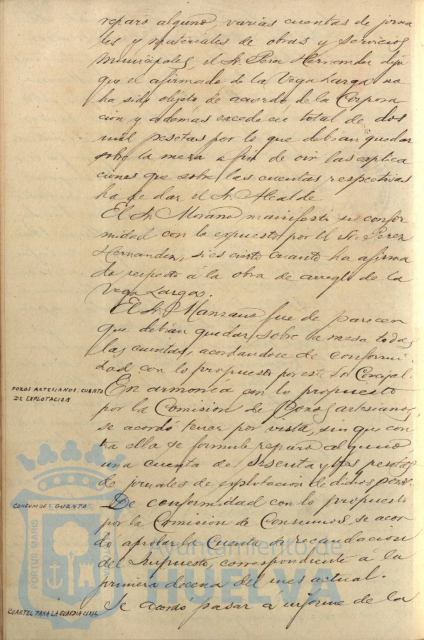 reparo alguno, varias cuentas de jorna-
les y materiales de obras y servicios
municipales, el Sr. Perez Hernandez dijo
que el afirmado de la Vega Larga no
ha sido objeto de acuerdo de la Corpora-
ción y ademas excede en total de dos
mil pesetas por lo que debian quedar
sobre la mesa a fin de oir las explica-
ciones que sobre las cuentas respectivas
ha de dar el Sr. Alcalde.
El Sr. Morano manifestó su confor-
midad con lo expuesto por el Sr. Perez
Hernandez, si es cierto cuanto ha afirma-
do respecto á la obra de arreglo de la
Vega Larga.
El Sr. Manzano fue de parecer
que debian quedar sobre la mesa todas
las cuentas, acordandose de conformi-
dad con lo propuesto por este Sr. Concejal.
POZOS ARTESIANOS. CUENTA
DE EXPLOTACION
En armonía con lo propuesto
por la Comision de Pozos artesianos,
se acordó tener por vista, sin que con-
tra ella se formule reparo alguno
una cuenta de sesenta y tres pesetas
de jornales de explotacion de dichos pozos.
CONSUMOS: CUENTA
De conformidad con lo propuesto
por la Comision de Consumos, se acor-
dó aprobar la Cuenta de recaudacion
del Impuesto, correspondiente á la
primera decena del mes actual.
CUARTEL PARA LA GUARDIA CIVIL
Se acordó pasar a informe de la
PORTUS MARIS
Ayuntamiento de
HUELVA